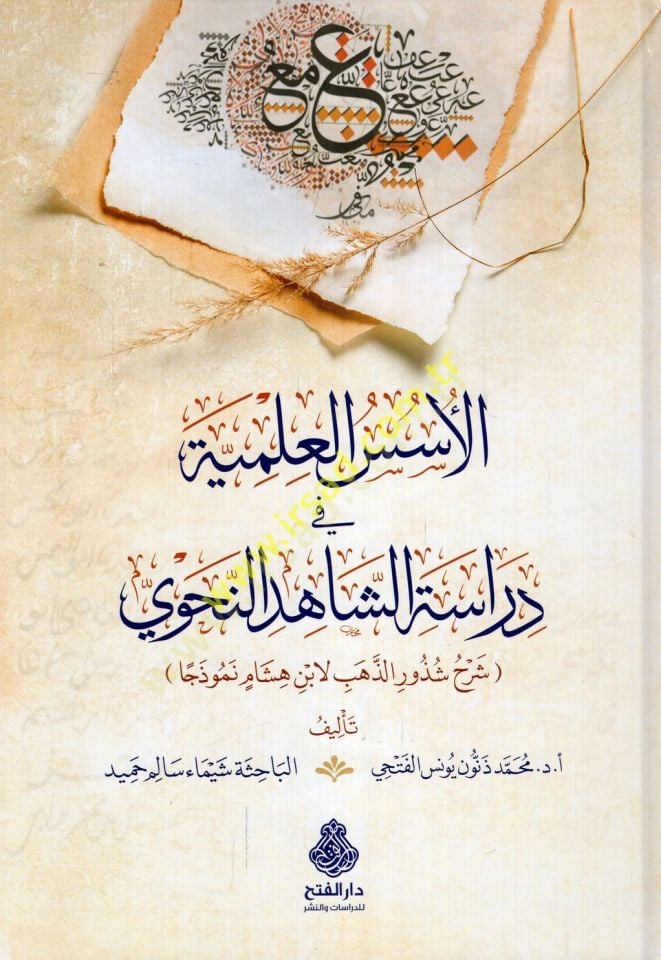 الأُسُسُ العِلْمِيَّة
في
دِرَاسَةِ الشَّاهِدِ النَّحْوِيّ
(شَرْحُ شُذُورِ الذَّهَبِ لابْنِ هِشَامٍ نَمُوذَجًا)
تَأْلِيفُ
أ.د. مُحَمَّد ذَنُّون يُونس الفَتْحِي
البَاحِثَة شَيْمَاء سَالِم حَمِيد
دار الفتح
للدراسات والنشر